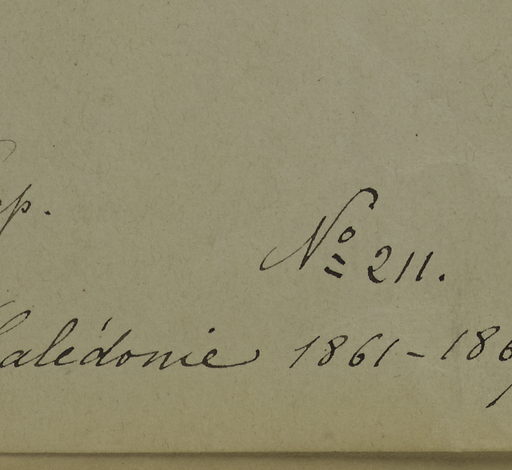 No 211.
Calédonie 1861-186